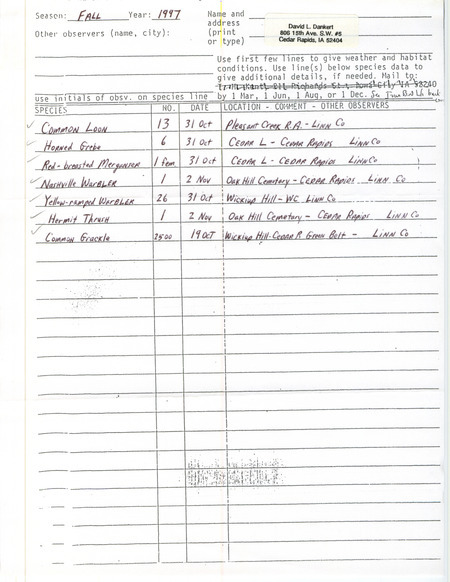 Season: FALL Year: 1997 Name and
address
Other observers (name, city): (print
or type)
David L. Dankert
806 15th Ave. S.W. #5
Cedar Rapids, IA 52404
Use first few lines to give weather and habitat
conditions. Use line(s) below species data to
give additional details, if needed. Mail to:
use initials of obsv. on species line by 1 Mar, 1 Jun, 1 Aug, or 1 Dec.
SPECIES NO. DATE LOCATION - COMMENT - OTHER OBSERVERS
Common Loon 13 31 Oct Pleasant Creek R.A. - Linn Co
Horned Grebe 6 31 Oct Cedar L - Cedar Rapids Linn Co
Red-breasted Merganser 1 fem 31 Oct Cedar L - Cedar Rapids Linn Co
Nashville Warbler 1 2 Nov Oak Hill Cemetery - Cedar Rapids Linn Co
Yellow-rumped Warbler 26 31 Oct Wickiup Hill - WC Linn Co
Hermit Thrush 1 2 Nov Oak Hill Cemetery - Cedar Rapids Linn Co
Common Grackle 2500 19 Oct Wickiup Hill-Cedar R Green Belt - Linn Co